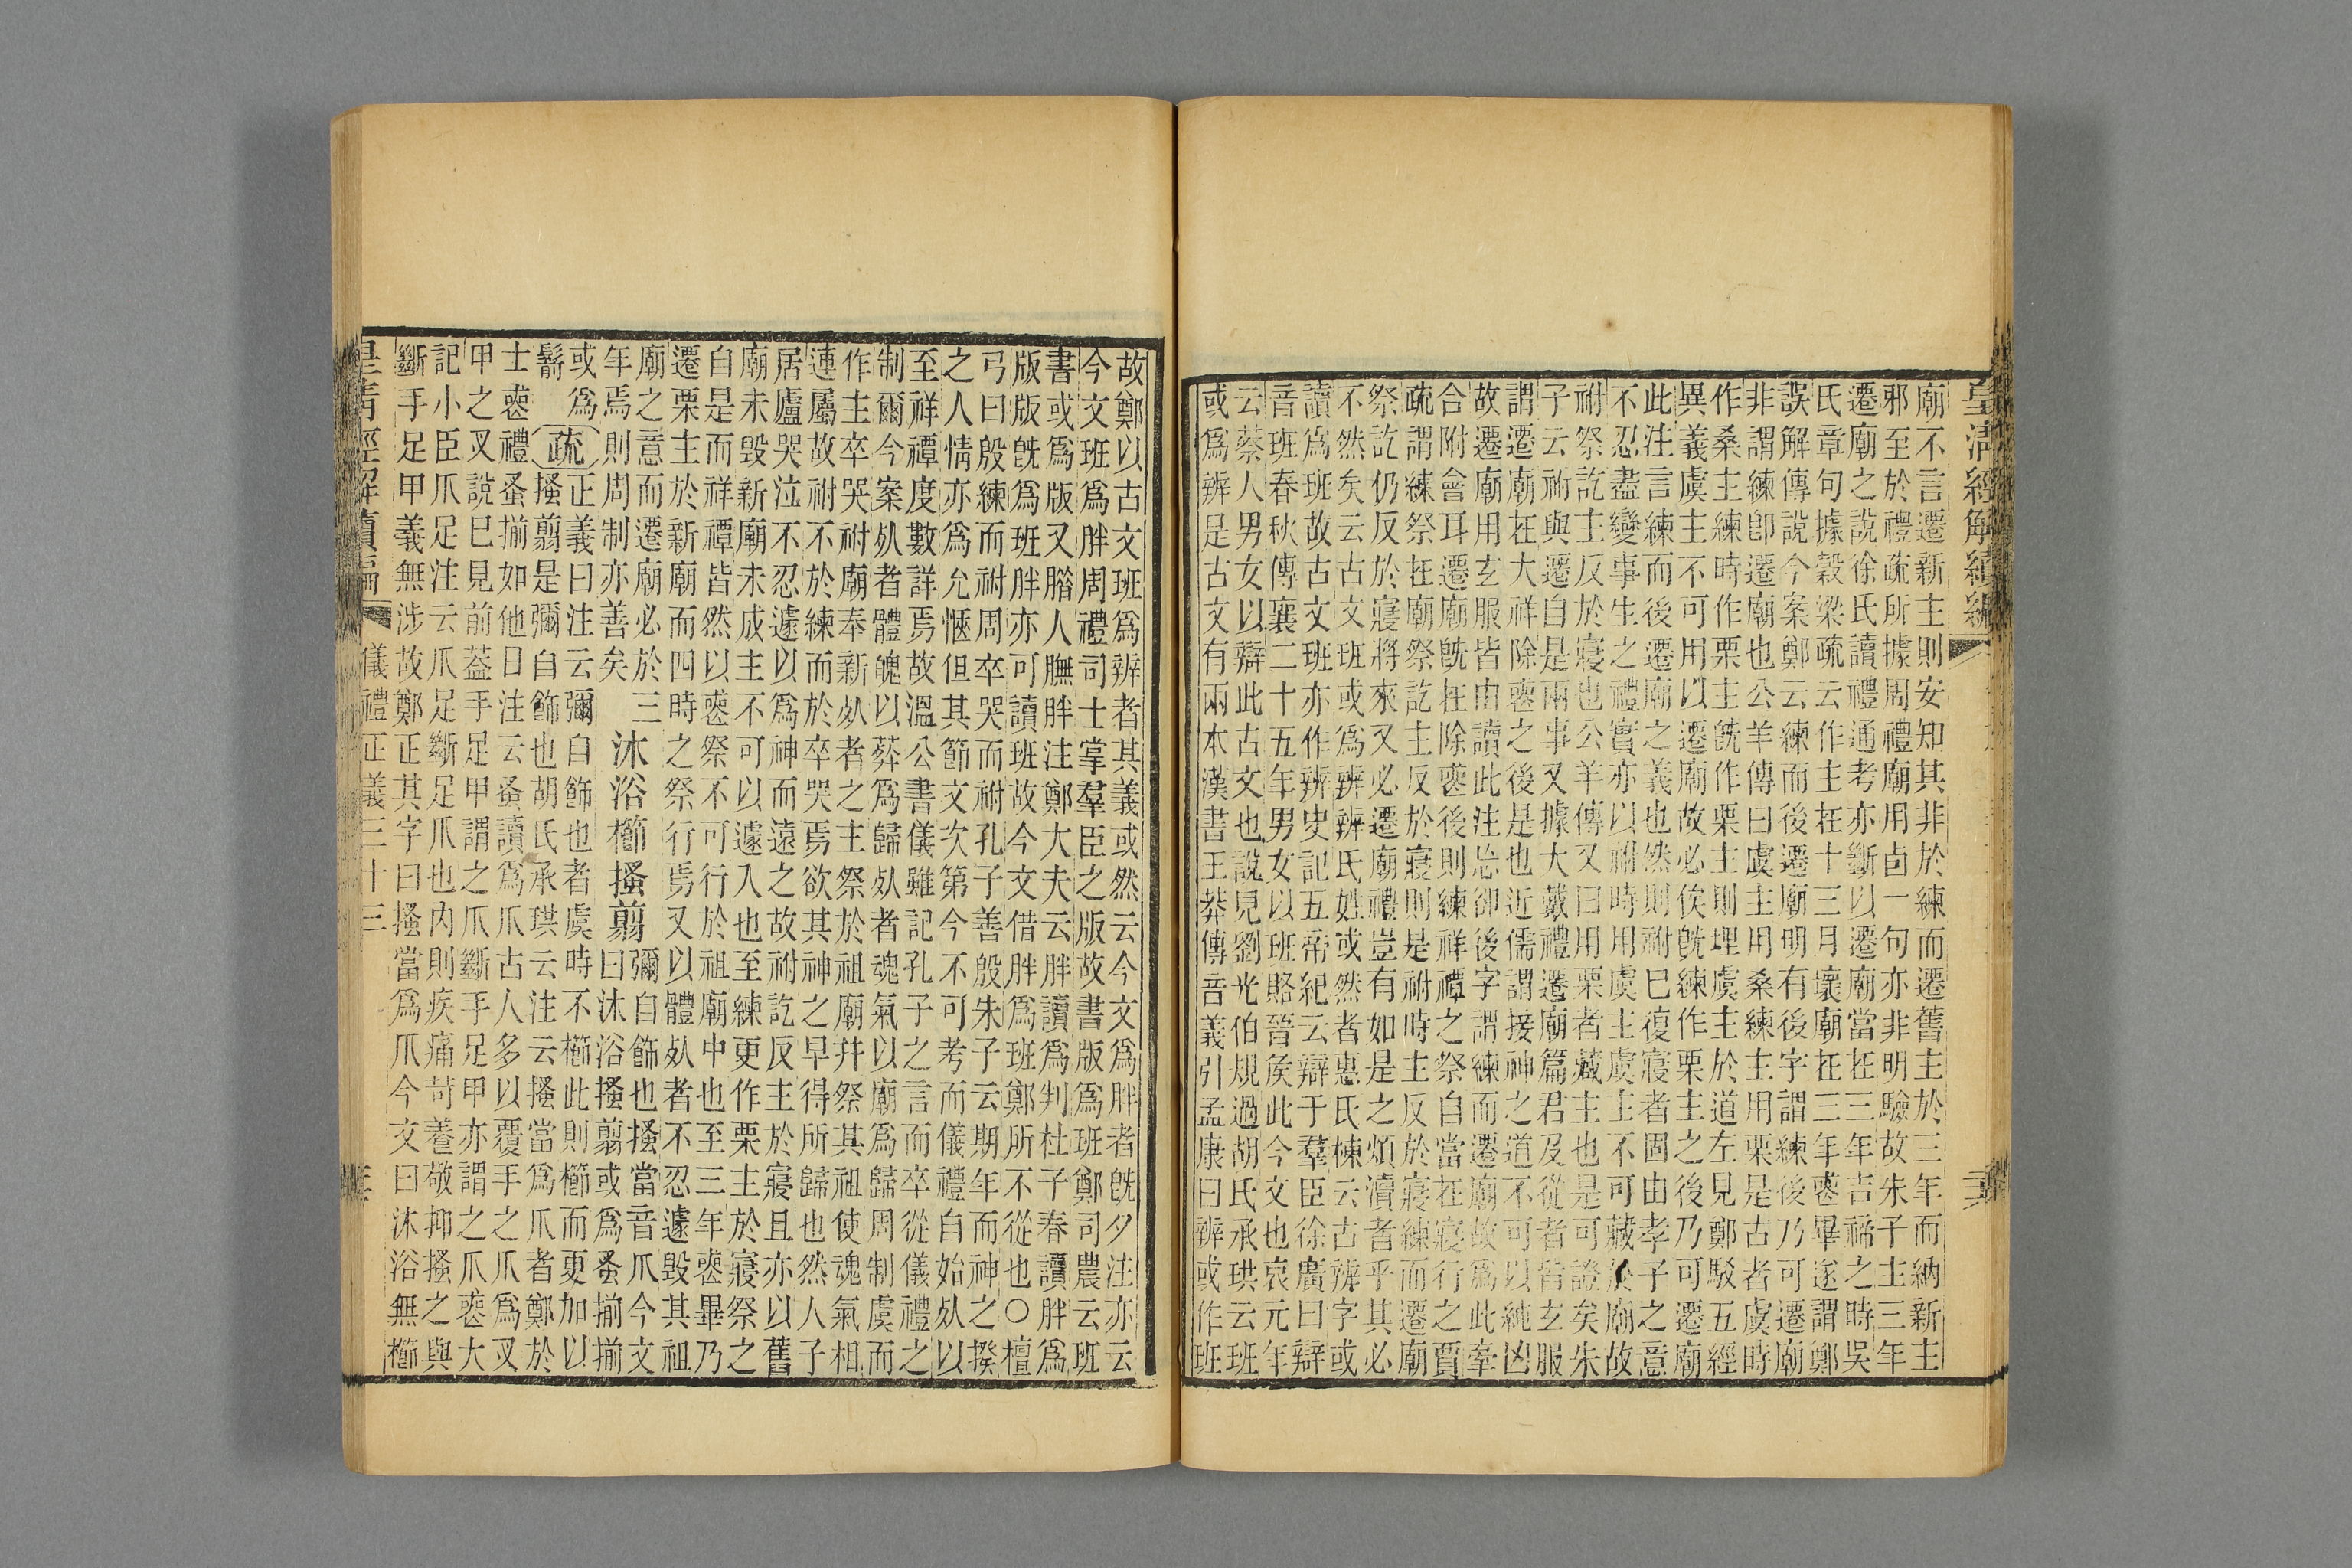 皇清經解續編
廟不言遷新主則安知其非於練而遷舊主於三年而納新主
邪至於禮疏所據周禮廟用卣一句亦非明驗故朱子主三年
遷廟之說徐氏讀禮通考亦斷以遷廟當在三年吉禘之時吳
氏章句據穀梁疏云作主在十三月壞廟在三年喪畢遂謂鄭
誤解傳說今案鄭云練而後遷廟明有後字謂練後乃可遷廟
非謂練卽遷廟也公羊傳曰虞主用桑練主用栗是古者虞時
作桑主練時作栗主旣作栗主則埋虞主於道左見鄭駁五經
異義虞主不可用以遷廟故必俟旣練作栗主之後乃可遷廟
此注言練而後遷廟之義也然則祔已復寢者固由孝子之意
不忍盡變事生之禮實亦以祔時用虞主虞主不可藏於廟故
祔祭訖主反於寢也公羊傳又曰用栗者藏主也是可證矣朱
子云祔與遷自是兩事又據大戴禮遷廟篇君及從者皆玄服
謂遷廟在大祥除喪之後是也近儒謂接神之道不可以純凶
故遷廟用玄服皆由讀此注忘卻後字謂練而遷廟故爲此牽
合附會耳遷廟旣在除喪後則練祥禫之祭自當在寢行之賈
疏謂練祭在廟祭訖主反於寢則是祔時主反於寢練而遷廟
祭訖仍反於寢將來又必遷廟禮豈有如是之煩瀆者乎其必
不然矣云古文班或爲辨辨氏姓或然者惠氏棟云古辨字或
讀爲班故古文班亦作辨史記五帝紀云辯于羣臣徐廣曰辯
音班春秋傳襄二十五年男女以班賂晉侯此今文也哀元年
云蔡人男女以辯此古文也說見劉光伯規過胡氏承珙云班
或爲辨是古文有兩本漢書王莽傳音義引孟康曰辨或作班
故鄭以古文班爲辨者其義或然云今文爲胖者旣夕注亦云
今文班爲胖周禮司士掌羣臣之版故書版爲班鄭司農云班
書或爲版又腊人膴胖注鄭大夫云胖讀爲判杜子春讀胖爲
版版旣爲班胖亦可讀班故今文借胖爲班鄭所不從也○檀
弓曰殷練而祔周卒哭而祔孔子善殷朱子云期年而神之揆
之人情亦爲允愜但其節文次第今不可考而儀禮自始死以
至祥禫度數詳焉故溫公書儀雖記孔子之言而卒從儀禮之
制爾今案死者體魄以葬爲歸死者魂氣以廟爲歸周制虞而
作主卒哭祔廟奉新死者之主祭於祖廟幷祭其祖使魂氣相
連屬故祔不於練而於卒哭焉欲其神之早得所歸也然人子
居廬哭泣不忍遽以爲神而遠之故祔訖反主於寢且亦以舊
廟未毀新廟未成主不可以遽入也至練更作栗主於寢祭之
自是而祥禫皆然以喪祭不可行於祖廟中也至三年喪畢乃
遷栗主於新廟而四時之祭行焉又以體死者不忍遽毀其祖
廟之意而遷廟必於三
年焉則周制亦善矣
沐浴櫛搔翦
彌自飾也搔當音爪今文
曰沐浴搔翦或爲蚤揃揃
或爲
鬋
疏
正義曰注云彌自飾也者虞時不櫛此則櫛而更加以
搔翦是彌自飾也胡氏承珙云注云搔當爲爪者鄭於
士喪禮蚤揃如他日注云蚤讀爲爪古人多以覆手之爪爲叉
甲之叉說已見前葢手足甲謂之爪斷手足甲亦謂之爪喪大
記小臣爪足注云爪足斷足爪也內則疾痛苛養敬抑搔之與
斷手足甲義無涉故鄭正其字曰搔當爲爪今文曰沐浴無櫛
皇清經解續編
儀禮正義三十三